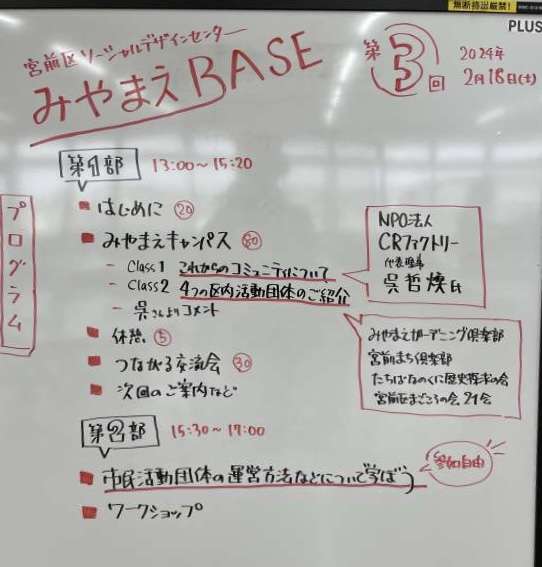 無断持出厳禁!
PLUS
宮前区ソーシャルデザインセンター
みやまえBASE
第3回
2024年
2月18日(土)
プログラム
第1部 13:00〜15:20
■ はじめに 20
■ みやまえキャンパス 80
- Class 1 これからのコミュニティについて
- Class 2 4つの区内活動団体のご紹介
- 呉さんよりコメント
■ 休憩 5
■ つながる交流会 30
■ 次回のご案内など
NPO法人
CRファクトリー
代表理事
呉哲煥氏
みやまえガーデニング倶楽部
宮前まち倶楽部
たちばなのくに歴史探求の会
宮前区まごころの会 21会
第2部 15:30〜17:00
■ 市民活動団体の運営方法などについて学ぼう
参加自由
■ ワークショップ